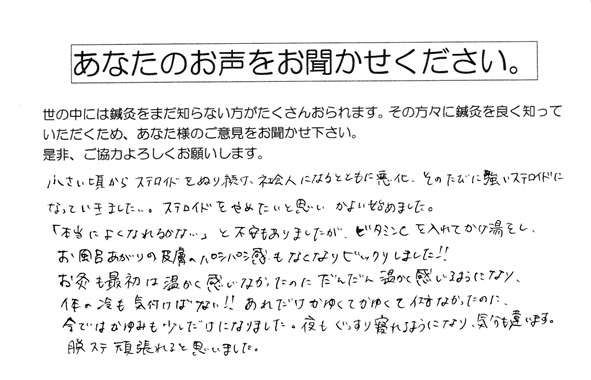 あなたのお声をお聞かせください。
世の中には鍼灸をまだ知らない方がたくさんおられます。その方々に鍼灸を良く知って
いただくため、あなた様のご意見をお聞かせ下さい。
是非、ご協力よろしくお願いします。
小さい頃からステロイドをぬり続け、社会人になるとともに悪化、そのたびに強いステロイドに
なっていきました…。ステロイドをやめたいと思い かよい始めました。
「本当によくなれるかな…」と不安もありましたが、ビタミンCを入れてかけ湯をし、
お風呂あがりの皮膚のパリパリ感もなくなりビックリしました!!
お灸も最初は温かく感じなかったのにだんだん温かく感じるようになり、
体の冷も気付けばない!! あれだけかゆくてかゆくて仕方なかったのに、
今ではかゆみも少しだけになりました。夜もぐっすり寝れるようになり、気分も違います。
脱ステ頑張れると思いました。